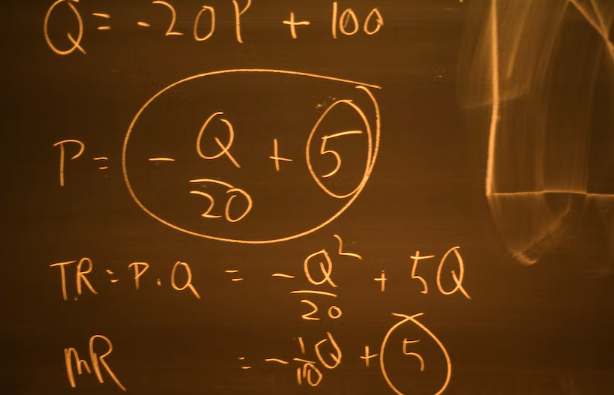 Q = -20P + 100
P = - Q/20 + 5
TR = P.Q = - Q²/20 + 5Q
MR = - 1/10 Q + 5